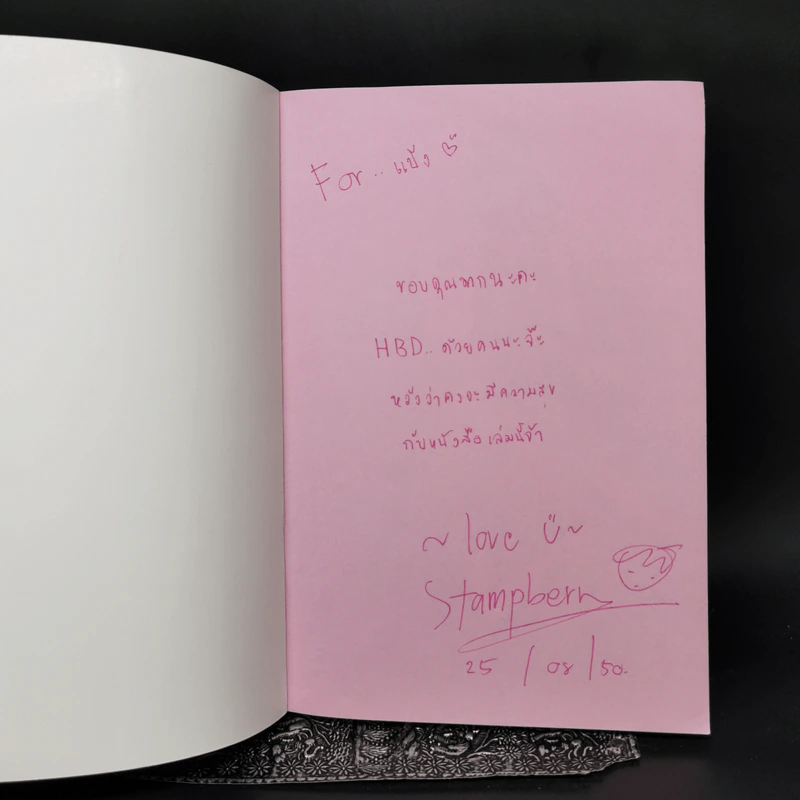 For.. แป้ง
ขอบคุณมากนะคะ
HBD.. ด้วยคนนะจ๊ะ
หวังว่าคงจะมีความสุข
กับหนังสือเล่มนี้จ้า
~ love ~
Stampberry
25 / 08 / 50.